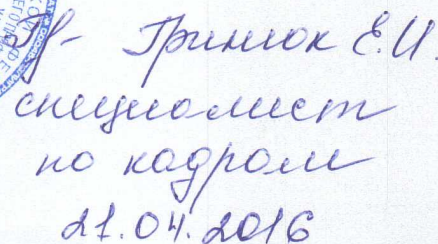 Гринюк Е.И.
специалист
по кадрам
21.04.2016